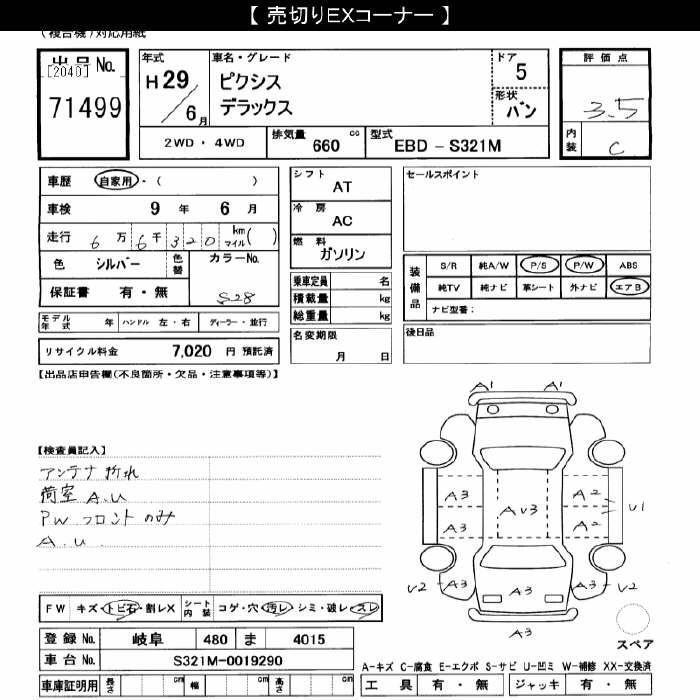 【 売切りEXコーナー 】
(複合機)対応用紙
出品 No.
[2040]
71499
年式
H 29
／ 6 月
車名・グレード
ピクシス
デラックス
ドア
5
形状
バン
評価点
3.5
内装 C
2WD ・ 4WD
排気量 660 cc
型式 EBD － S321M
車歴 自家用・( )
車検 9 年 6 月
走行 6 万 6 千 3 2 0 km マイル ( )
色 シルバー 色替 カラーNo.
保証書 有 ・ 無 S28
シフト
AT
冷房
AC
燃料
ガソリン
乗車定員 名
積載量 kg
総重量 kg
名変期限
月 日
セールスポイント
装備品
S/R 純A/W P/S P/W ABS
純TV 純ナビ 革シート 外ナビ エアB
ナビ型番：
後日品
モデル年式 年 ハンドル 左・右 ディーラー・並行
リサイクル料金 7,020 円 預託済
【出品店申告欄(不良箇所・欠品・注意事項等)】
【検査員記入】
アンテナ折れ
荷室 A.U
PW フロントのみ
A.U.
A1 A1
A3 A2
AV3 U1
A3 A2
V2 A3 A3 A3 V2
A3
スペア
FW キズ・トビ石・割レX シート内装 コゲ・穴・汚レ・シミ・破レ・スレ
登録 No. 岐阜 480 ま 4015
車台 No. S321M-0019290
車庫証明用 長さ cm 幅 cm 高さ cm
A-キズ C-腐食 E-エクボ S-サビ U-凹ミ W-補修 XX-交換済
工具 有 ・ 無 ジャッキ 有 ・ 無